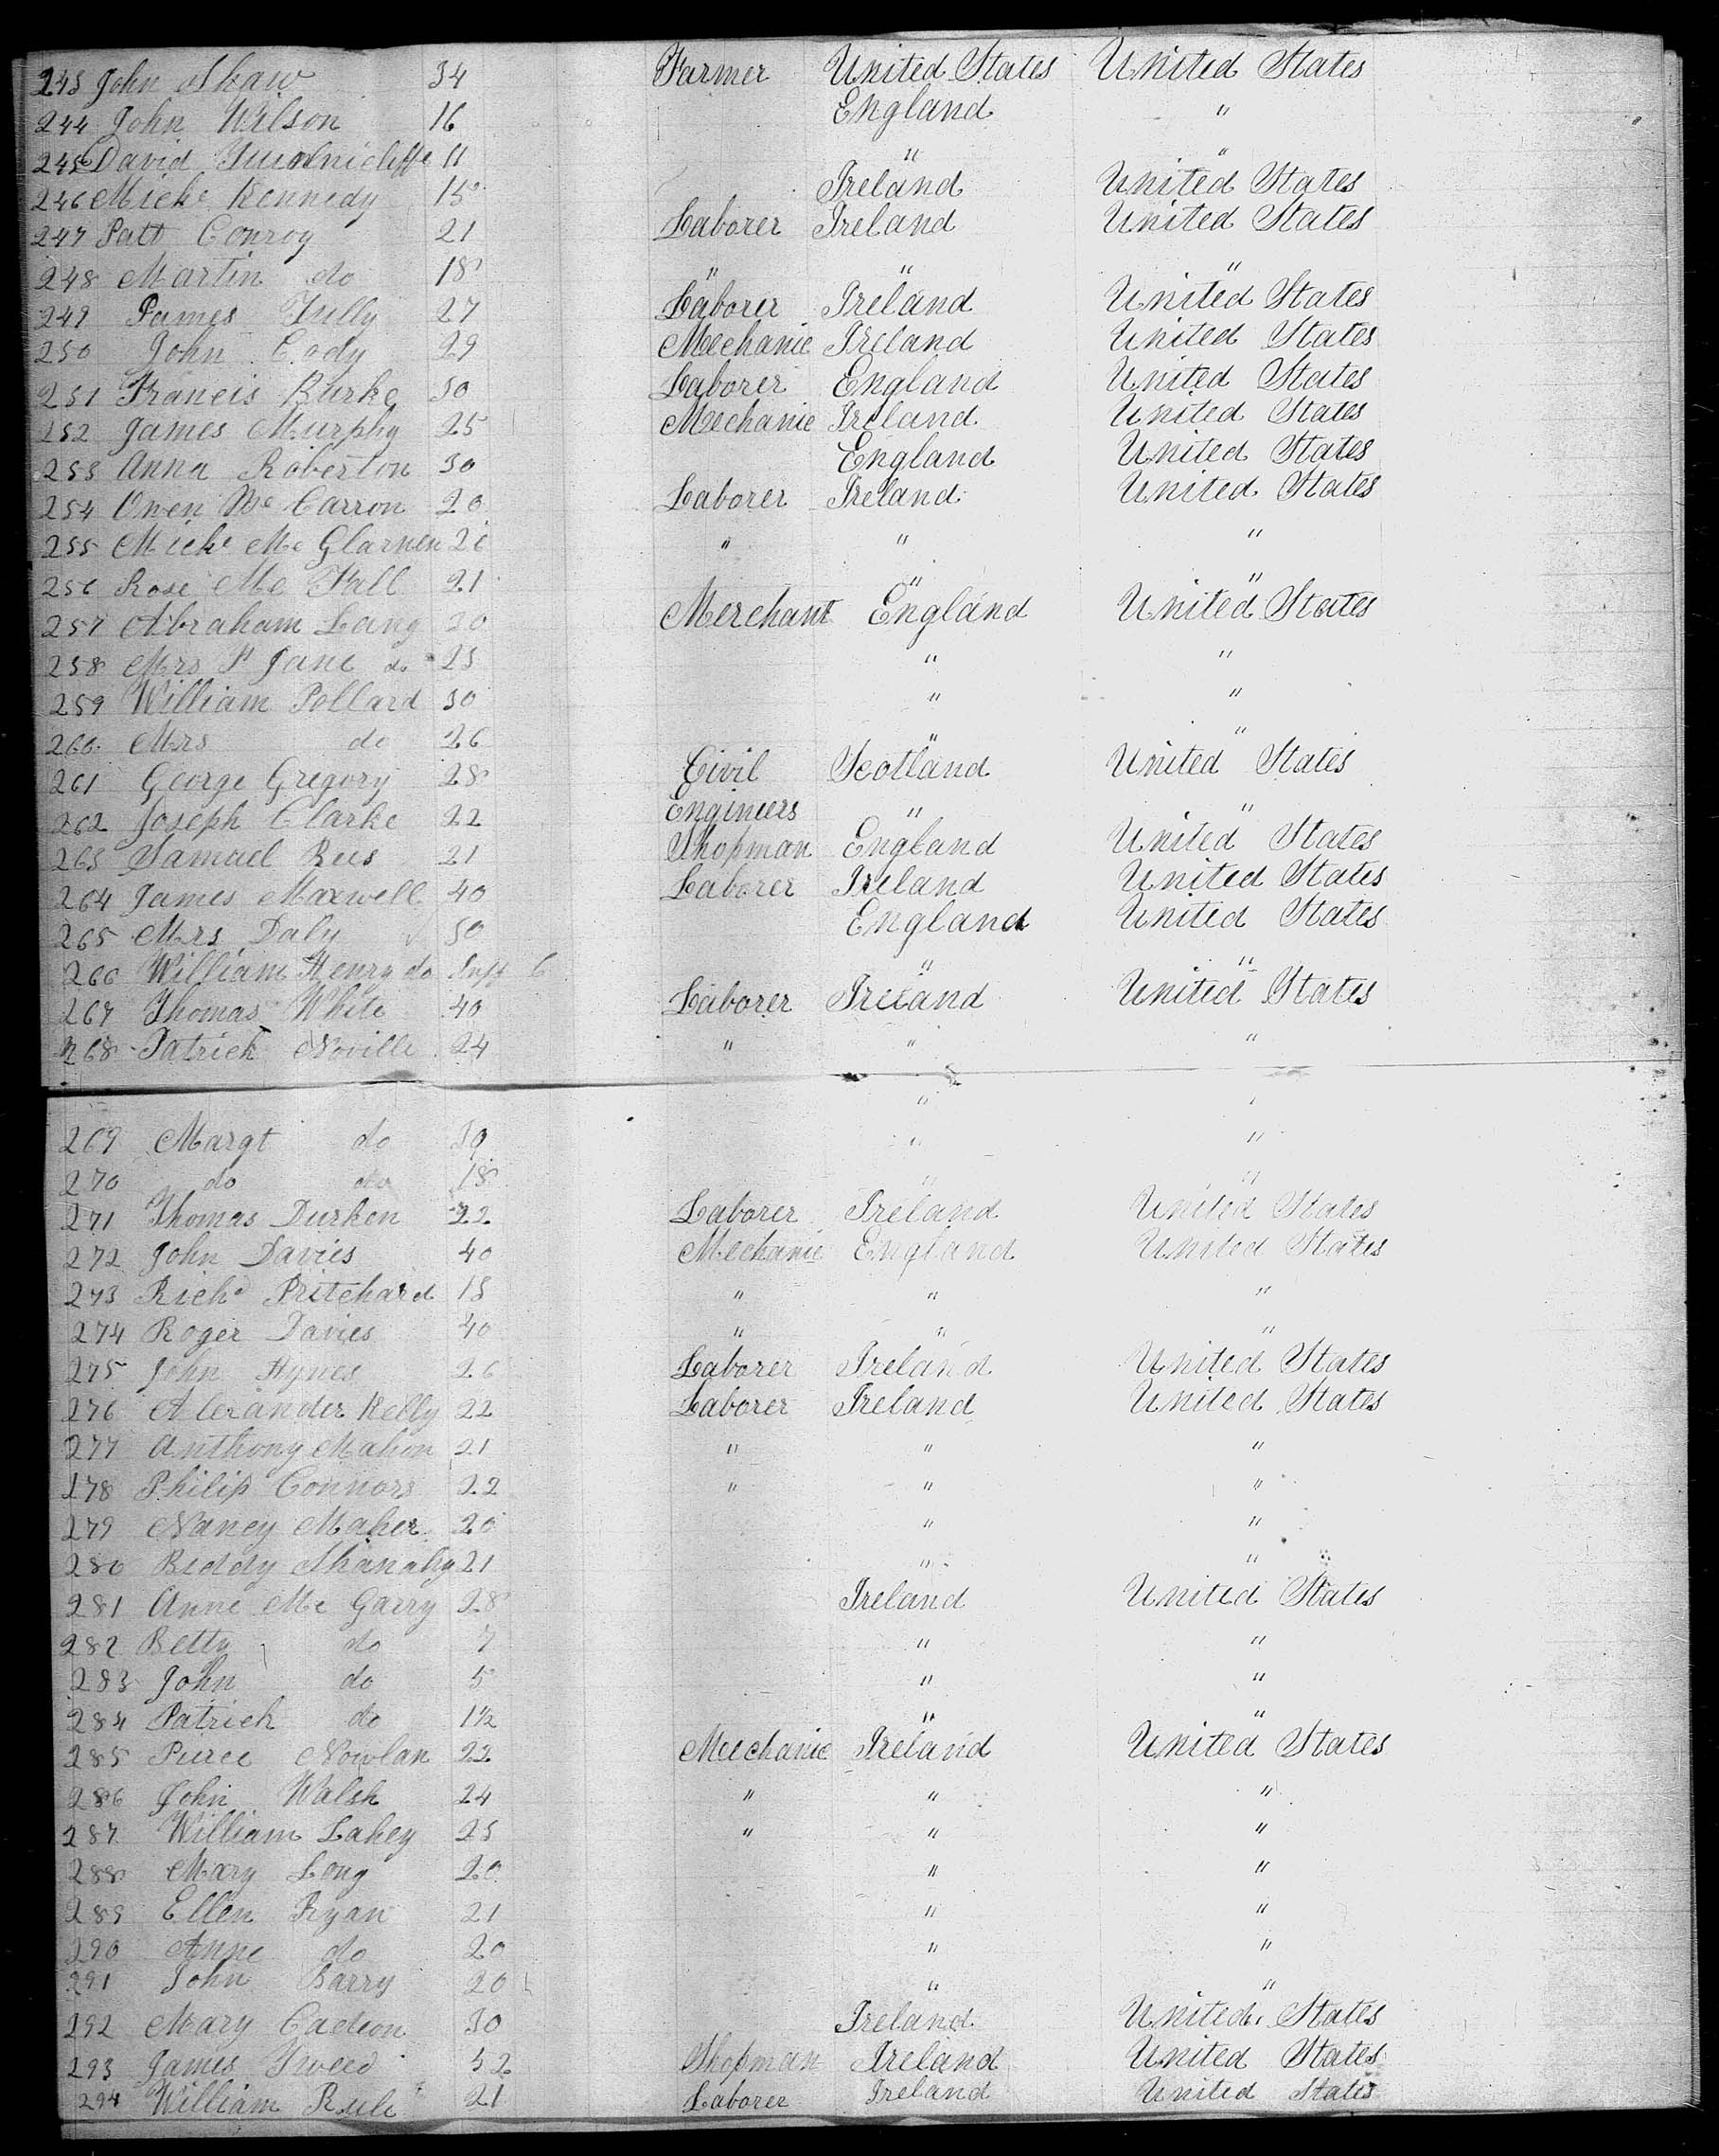 243 John Shaw 34 Farmer United States United States
244 John Wilson 16 England "
245 David Tunnicliffe 11 " "
246 Michl Kennedy 15 Ireland United States
247 Patt Conroy 21 Laborer Ireland United States
248 Martin do 18 " " "
249 James Tully 27 Laborer Ireland United States
250 John Cody 29 Mechanic Ireland United States
251 Francis Burke 30 Laborer England United States
252 James Murphy 25 Mechanic Ireland United States
253 Anna Roberton 30 England United States
254 Owen Mc Carron 20 Laborer Ireland United States
255 Michl Mc 26 " " "
256 Rose Mc Fall 21 " "
257 Abraham Lang 20 Merchant England United States
258 Mrs P Jane do 25 " "
259 William Pollard 30 " "
260 Mrs do 26 " "
261 George Gregory 28 Civil Scotland United States
262 Joseph Clarke 22 Engineers " "
263 Samuel Rees 21 Shopman England United States
264 James Maxwell 40 Laborer Ireland United States
265 Mrs Daly 30 England United States
266 William Henry do Inft 6 " "
267 Thomas White 40 Laborer Ireland United States
268 Patrick Noville 24 " " "
" "
269 Margt do 30 " "
270 do do 18 " "
271 Thomas Durken 22 Laborer Ireland United States
272 John Davies 40 Mechanic England United States
273 Richd Pritchard 18 " " "
274 Roger Davies 40 " " "
275 John Hynes 26 Laborer Ireland United States
276 Alexander Kelly 22 Laborer Ireland United States
277 Anthony Mahon 21 " " "
278 Philip Connors 22 " " "
279 Nancy Maher 20 " "
280 Biddy Shanahy 21 " "
281 Anne Mc Garry 28 Ireland United States
282 Betty do 7 " "
283 John do 5 " "
284 Patrick do 1½ " "
285 Pierce Nowlan 22 Mechanic Ireland United States
286 John Walsh 24 " " "
287 William Lahey 25 " " "
288 Mary Long 20 " "
289 Ellen Ryan 21 " "
290 Anne do 20 " "
291 John Barry 20 " "
292 Mary 30 Ireland United States
293 James Tweed 32 Shopman Ireland United States
294 William Rule 21 Laborer Ireland United States